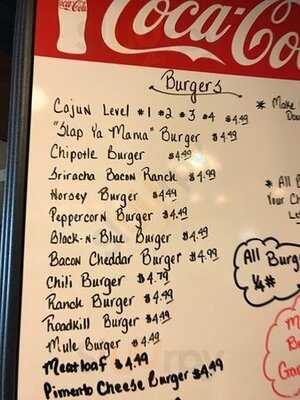 Coca-Cola
Coca-Cola
Burgers
Cajun Level #1 #2 #3 #4 $4.49
"Slap Ya Mama" Burger $4.49
Chipotle Burger $4.49
Sriracha Bacon Ranch $4.99
Horsey Burger $4.49
Peppercorn Burger $4.49
Black-N-Blue Burger $4.99
Bacon Cheddar Burger $4.99
Chili Burger $4.79
Ranch Burger $4.49
Roadkill Burger $4.49
Mule Burger $4.49
Meatloaf $4.49
Pimento Cheese Burger $4.99
* Make
* All
Your Ch
All Burg
1/4#